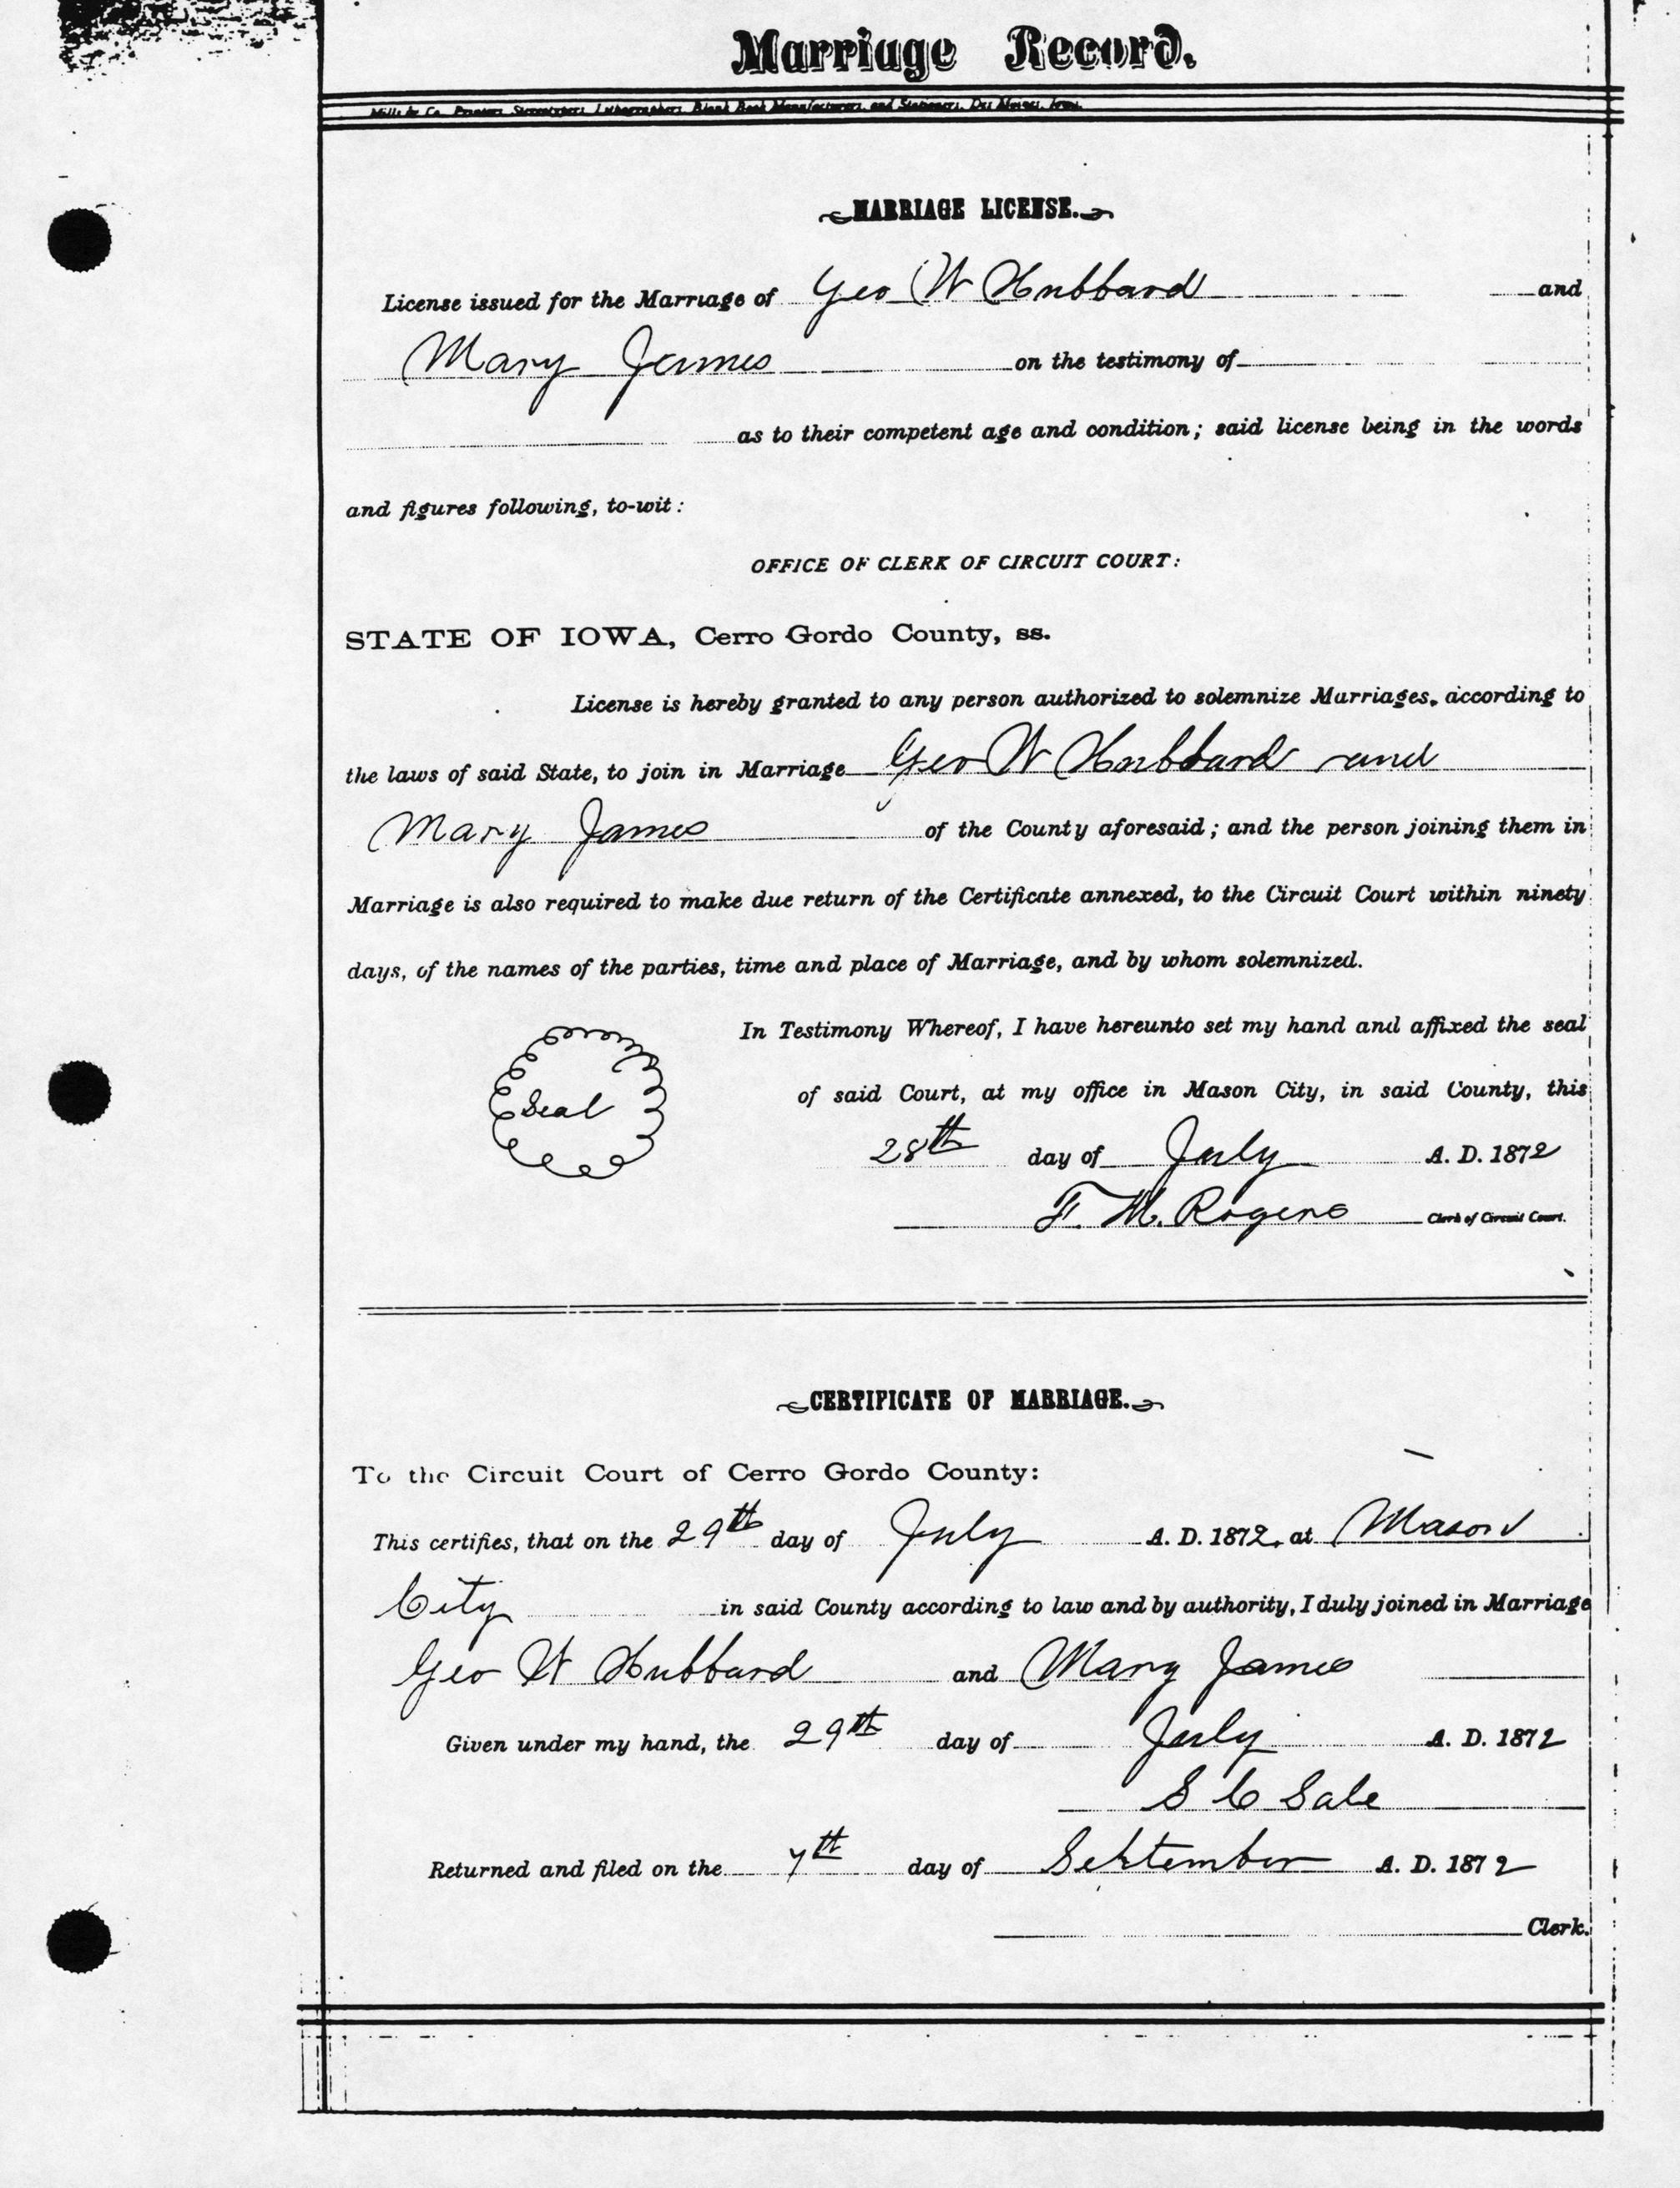 Marriage Record.
Mills & Co. Printers, Stereotypers, Lithographers, Blank Book Manufacturers, and Stationers, Des Moines, Iowa.
MARRIAGE LICENSE.
License issued for the Marriage of Geo W Hubbard and
Mary James on the testimony of
as to their competent age and condition; said license being in the words
and figures following, to-wit:
OFFICE OF CLERK OF CIRCUIT COURT:
STATE OF IOWA, Cerro Gordo County, ss.
License is hereby granted to any person authorized to solemnize Marriages, according to
the laws of said State, to join in Marriage Geo W Hubbard and
Mary James of the County aforesaid; and the person joining them in
Marriage is also required to make due return of the Certificate annexed, to the Circuit Court within ninety
days, of the names of the parties, time and place of Marriage, and by whom solemnized.
In Testimony Whereof, I have hereunto set my hand and affixed the seal
Seal
of said Court, at my office in Mason City, in said County, this
28th day of July A. D. 1872
F. M. Rogers Clerk of Circuit Court.
CERTIFICATE OF MARRIAGE.
To the Circuit Court of Cerro Gordo County:
This certifies, that on the 29th day of July A. D. 1872, at Mason
City in said County according to law and by authority, I duly joined in Marriage
Geo W Hubbard and Mary James
Given under my hand, the 29th day of July A. D. 1872
S C Sale
Returned and filed on the 7th day of September A. D. 1872
Clerk.